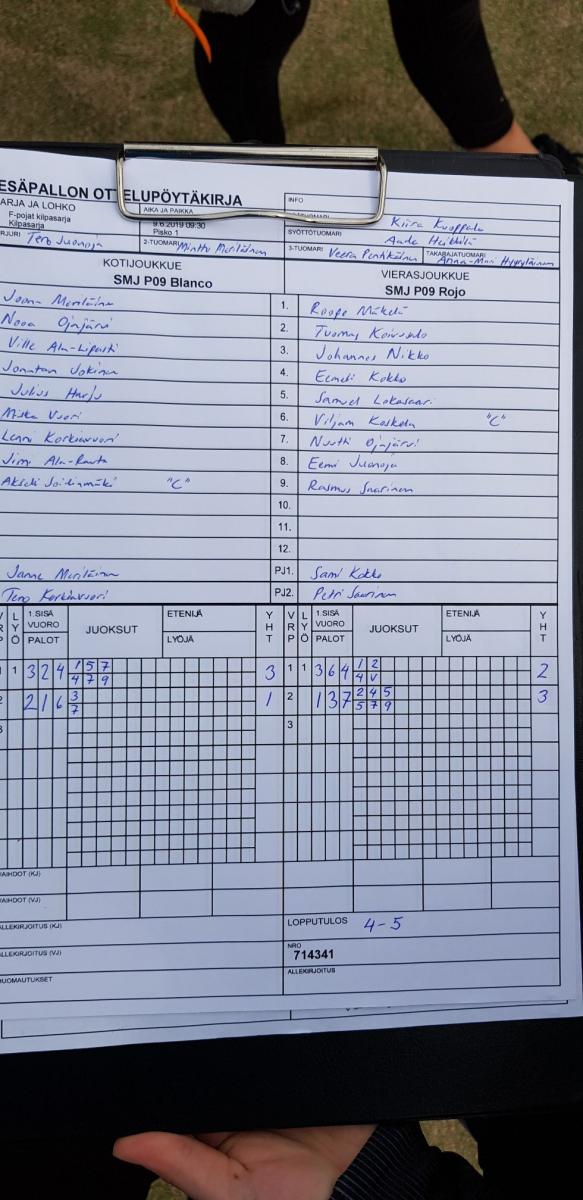 ESÄPALLON OTTELUPÖYTÄKIRJA
INFO
ARJA JA LOHKO
AIKA JA PAIKKA
F-pojat kilpasarja
Kilpasarja
9.6.2019 09:30
Pisko 1
Kiira Kuoppala
SYÖTTÖTUOMARI
RJURI Tero Juonoja
2-TUOMARI Minttu Meriläinen
3-TUOMARI Veera Penttikäinen
TAKARAJATUOMARI Anna-Mari Hyyryläinen
KOTIJOUKKUE
VIERASJOUKKUE
SMJ P09 Blanco
SMJ P09 Rojo
Joona Meriläinen
1. Roope Mäkelä
Nooa Ojajärvi
2. Tuomas Koivusalo
Ville Ala-Lipasti
3. Johannes Nikko
Jonatan Jokinen
4. Eemeli Kokko
Julius Harju
5. Samuel Lokasaari
Miska Vuori
6. Viljam Koskela "C"
Lenni Korkiavuori
7. Nuutti Ojajärvi
Jimi Ala-Rauta
8. Eemi Juonoja
"C"
9. Rasmus Saarinen
10.
11.
12.
Janne Meriläinen
PJ1. Sami Kokko
Tero Korkiavuori
PJ2. Petri Saarinen
VRP LYÖ 1.SISÄ VUORO PALOT JUOKSUT ETENIJÄ LYÖJÄ YHT
VRP LYÖ 1.SISÄ VUORO PALOT JUOKSUT ETENIJÄ LYÖJÄ YHT
1 1 3 2 4 1 5 7 3
4 7 9
1 1 3 6 4 1 2 2
4 V
2 2 1 6 3 1
7
2 1 3 7 2 4 5 3
5 7 9
3
3
AIHDOT (KJ)
AIHDOT (VJ)
ALLEKIRJOITUS (KJ)
LOPPUTULOS 4-5
ALLEKIRJOITUS (VJ)
NRO
714341
HUOMAUTUKSET
ALLEKIRJOITUS